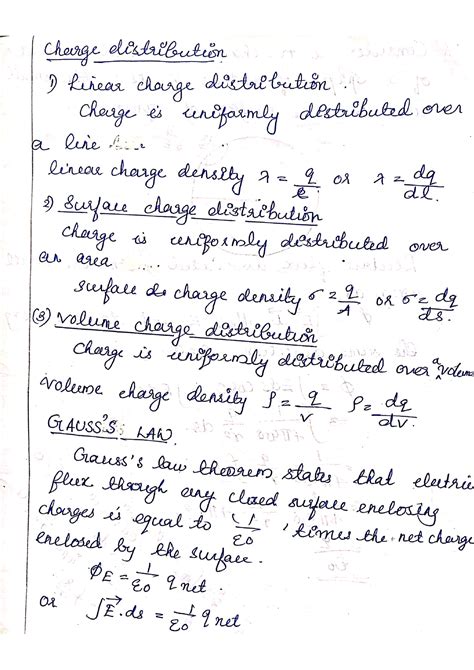 Charge distribution
1) Linear charge distribution.
Charge is uniformly distributed over
a line
linear charge density λ = q/ℓ or λ = dq/dl.
2) Surface charge distribution
Charge is uniformly distributed over
an area
surface ds charge density σ = q/A or σ = dq/ds.
(3) Volume charge distribution
Charge is uniformly distributed over a volume
volume charge density ρ = q/v ρ = dq/dv.
GAUSS'S LAW
Gauss's law theorem states that electric
flux through any closed surface enclosing
charges is equal to 1/ε0 times the net charge
enclosed by the surface.
ΦE = 1/ε0 q net.
or ∫E⃗.ds = 1/ε0 q net